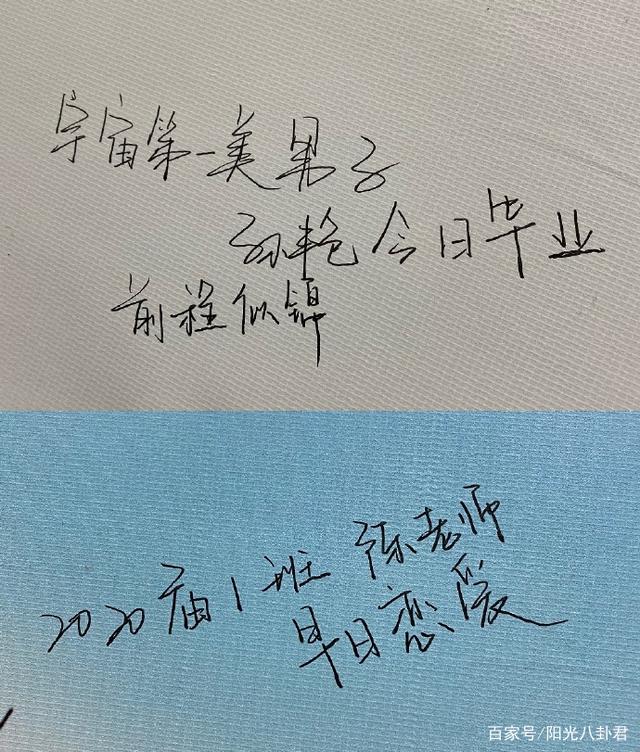 宇宙第一美男子
孙艳今日毕业
前程似锦
2020届1班 陈老师
早日恋爱
百家号/阳光八卦君